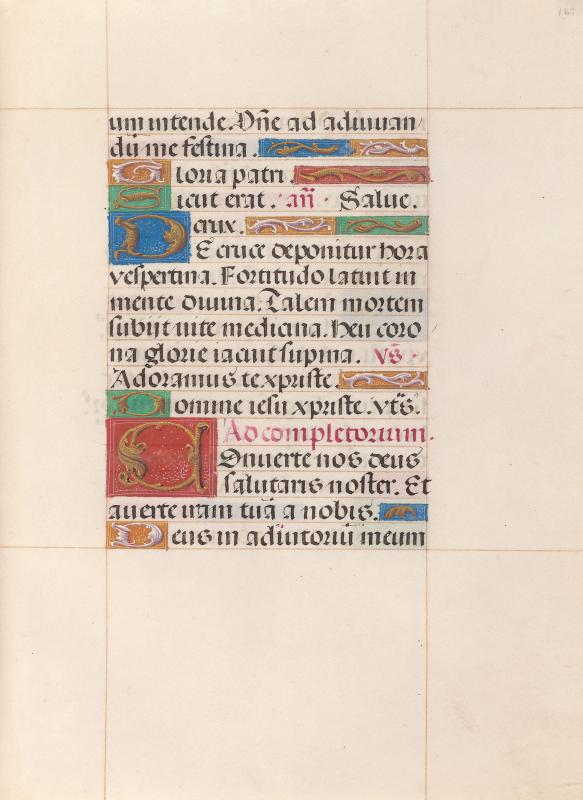 um intende. Dñe ad adiuuan
dũ me festina.
Gloria patri.
Sicut erat. añ. Salue.
crux.
De cruce deponitur hora
vespertina. Fortitudo latuit in
mente diuina. Talem mortem
subijt uite medicina. Heu coro
na glorie iacuit supina. vs̃.
Adoramus te xpriste.
Domine iesu xpriste. vt s̃.
Ad completorium.
Conuerte nos deus
salutaris noster. Et
auerte iram tuã a nobis.
Deus in adiutoriũ meum